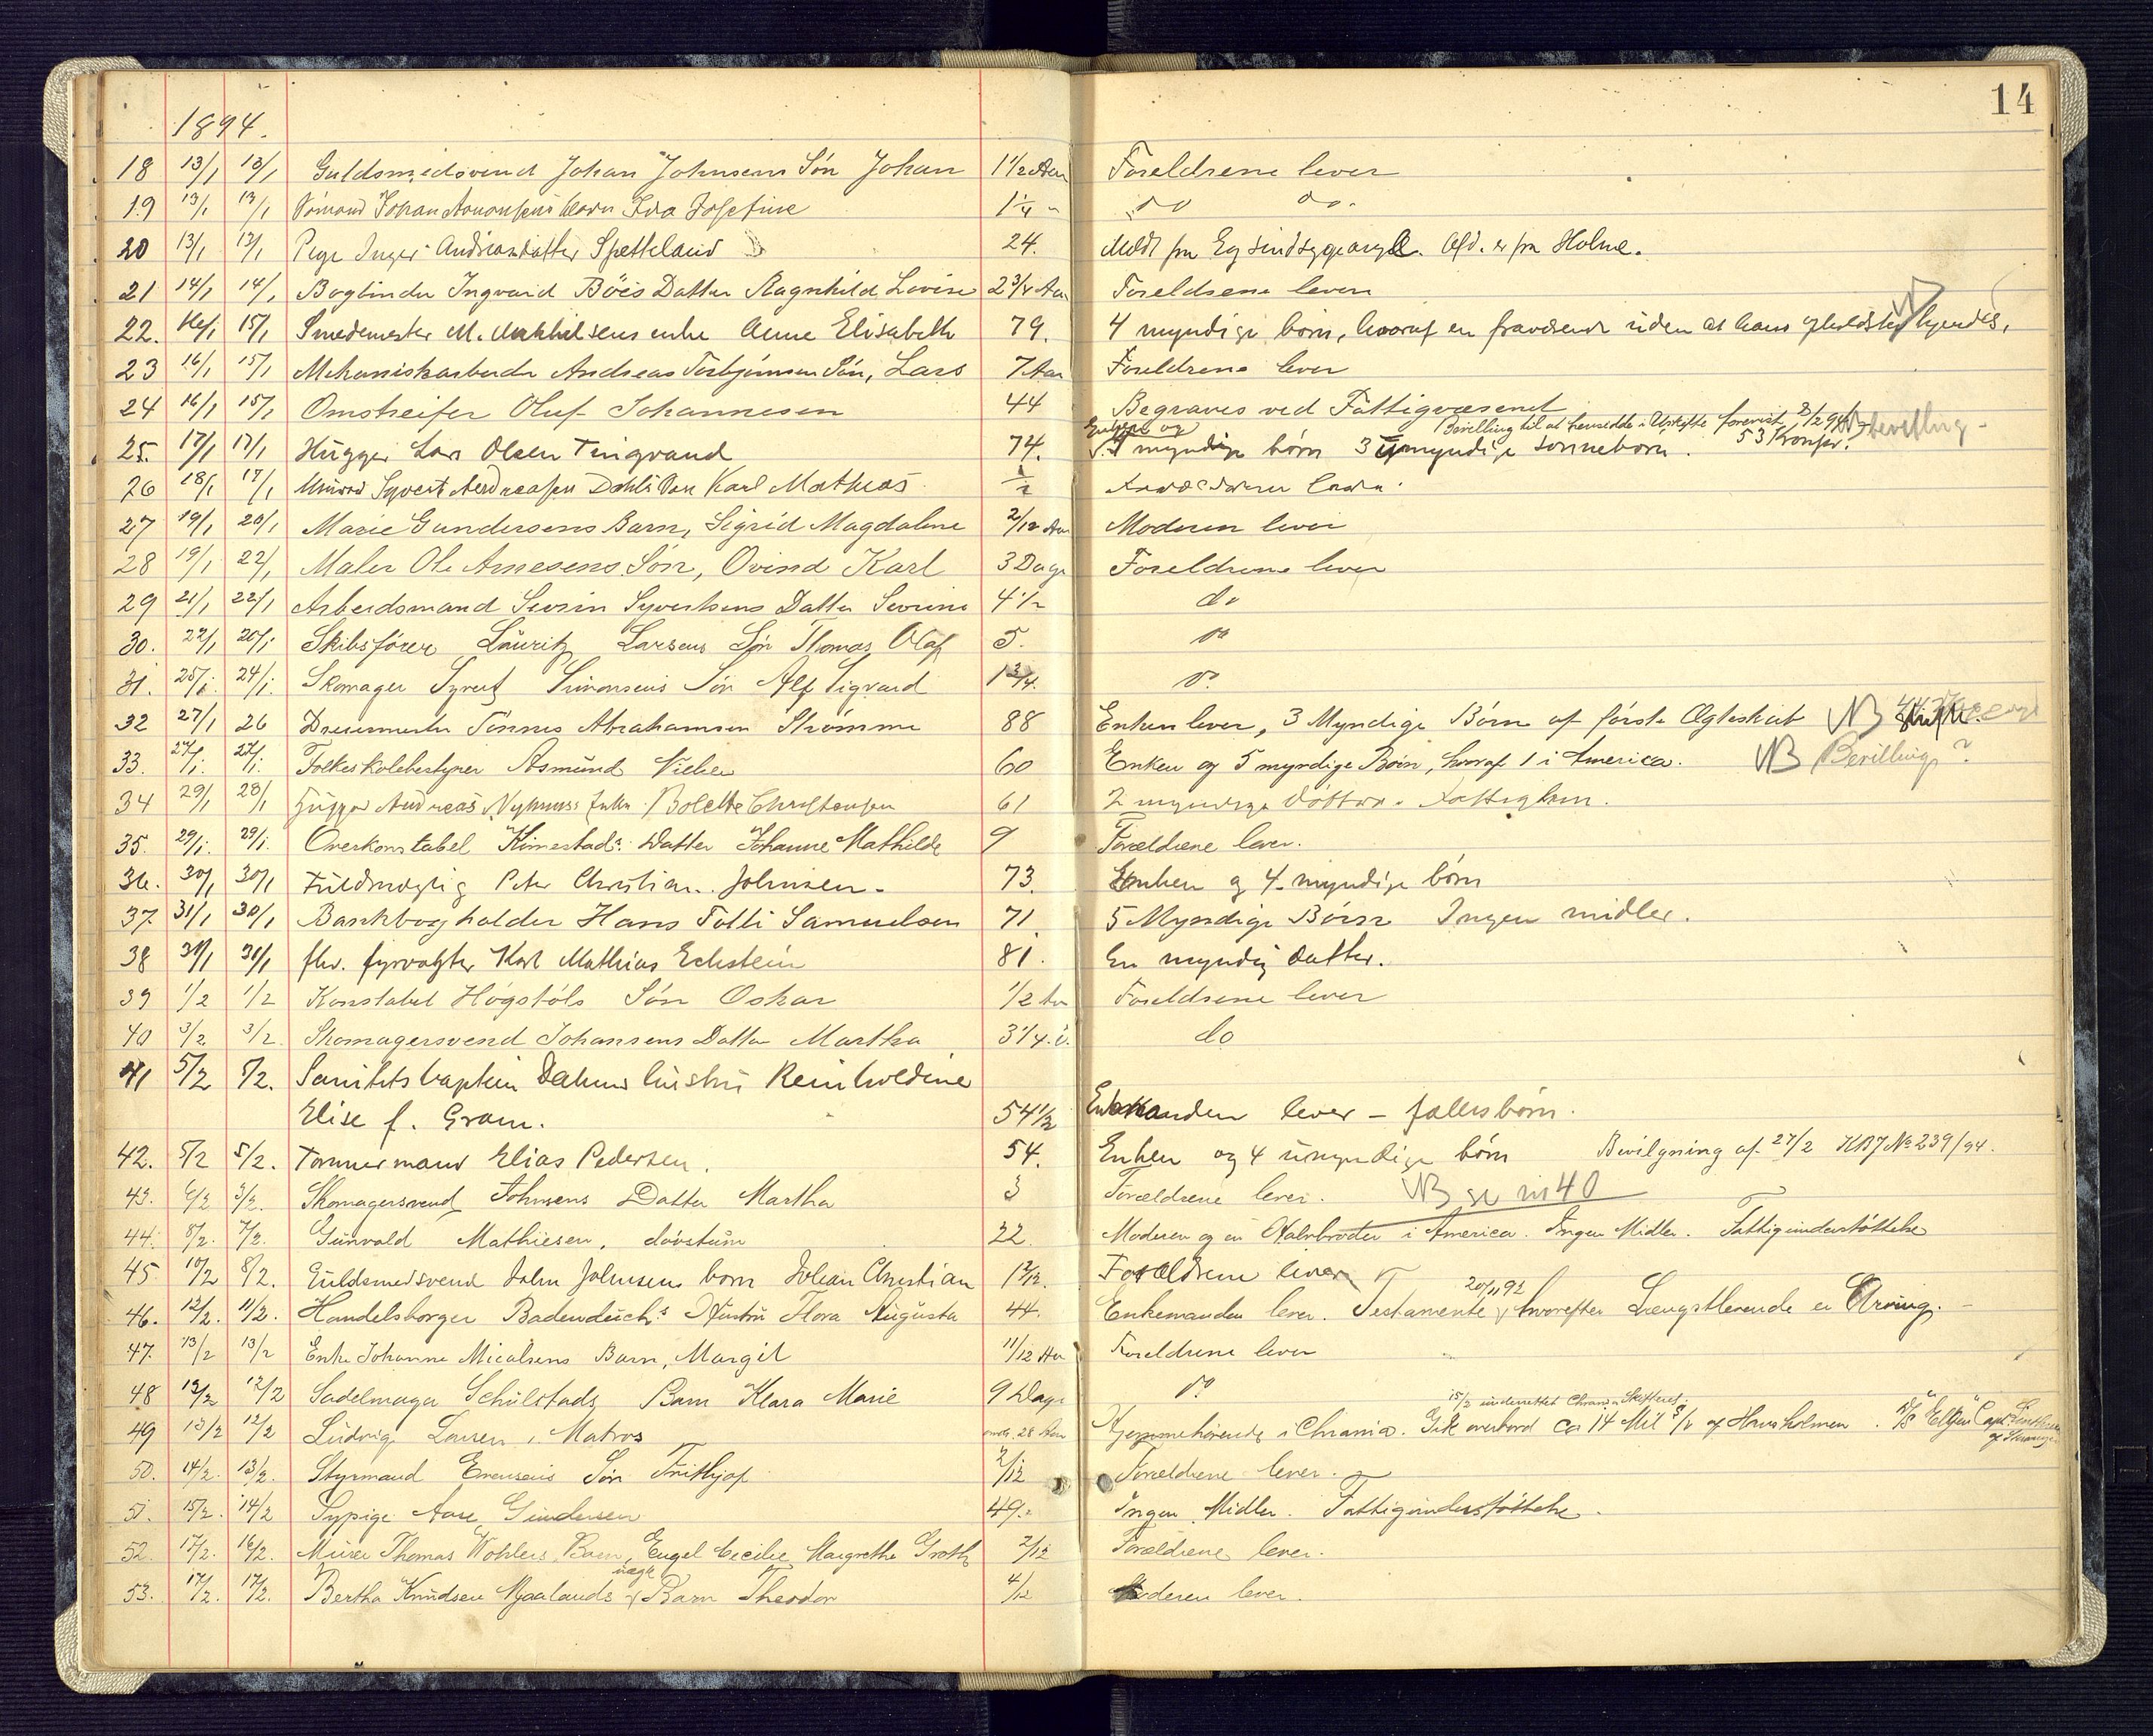 14
1894.
18 13/1 13/1 Guldsmedsvend Johan Johnsens Søn Johan 1 1/2 Aar Foreldrene lever
19 13/1 13/1 Johan Aanonsens barn Ida Josefine 1 1/4 " do do.
20 13/1 12/1 Pige Inger Andreasdatter Spetteland 24. Meldt fra Eg sindsygeasyl. Afd. er fra Holme.
21 14/1 14/1 Bogbinder Ingvard Böes Datter Ragnhild Lovise 2 3/4 Aar Foreldrene lever
22. 16/1 15/1 Smedemester M. enke Anne Elisabeth 79. 4 myndige börn, hvoraf en fraværende uden at hans opholdsted kjendes.
23 16/1 15/1 Mekaniskarbeider Andreas Torbjörnsen Sön, Lars 7 Aar Foreldrene lever
24 16/1 15/1 Omstreifer Oluf Johannesen 44 Begraves ved Fattigvæsenet
Enken og Bevilling til at hensidde i Uskifte forevist 8/2 94 Bevilling
25. 17/1 17/1 Hugger Lars Olsen Tingvand 74. myndige börn 3 umyndige sønneborn. 53 Konsv.
26 18/1 17/1 Syvert Andreasen Dahls Karl Mathias 1/2 lever
27 19/1 20/1 Marie Gundersens Barn, Sigrid Magdalene 2/12 Aar Moderen lever
28 19/1 22/1 Maler Ole Arnesens Sön, Övind Karl 3 Dage Foreldrene lever
29 21/1 22/1 Arbeidsmand Severin Syvertsens Datter Severine 4 1/2 do
30. 22/1 20/1 Skibsförer Lauritz Larsens Sön Thomas Olaf 5. do
31. 25/1. 24/1. Skomager Syvert Simonsens Sön Alf Sigvard 1 3/4. do
32 27/1 26 Dreiermester Tönnes Abrahamsen Strömme 88 Enken lever, 3 Myndige Börn af förste Ægteskab NB
33. 27/1. 27/1. Folkeskolebestyrer Asmund Vieher 60 Enken og 5 myndige Börn, hvoraf 1 i America. NB Bevilling?
34 29/1 28/1 Hugger Andreas Enke Bolette Christensen 61 2 myndige döttre. Fattiglem.
35. 29/1. 29/1. Overkonstabel Kimestads Datter Johanne Mathilde 9 Forældrene lever.
36. 30/1 30/1 Fuldmægtig Peter Christian Johnsen. 73. Enken og 4 myndige börn
37. 31/1 30/1 Bankbogholder Hans Totti Samuelsen 71. 5 Myndige Börn Ingen midler.
38 31/1 31/1 fhv. fyrvogter Karl Mathias Eckstein 81. En myndig datter.
39 1/2 1/2 Konstabel Högstöls Sön Oskar 1/2 Aar Foreldrene lever
40 3/2 3/2. Skomagersvend Johansens Datter Martha 3 1/4. do
41 5/2 5/2. Sanitetskaptein Dahms hustru Reinholdine
Elise f. Gram. 54 1/2 Enkemanden lever - fellesbörn.
42. 5/2 5/2. Tömmermand Elias Pedersen. 54. Enken og 4 umyndige börn Bevilgning af 27/2 KBJ No 239/94.
43. 6/2 3/2. Skomagersvend Johnsens Datter Martha 3 Forældrene lever. NB se nr 40
44. 8/2. 7/2. Gunvald Mathiesen, dövstum 22 Moderen og en Halvbroder i America. Ingen Midler. Fattigunderstöttelse
45 10/2 8/2. Guldsmedsvend John Johnsens barn Johan Christian 1 7/12. Forældrene lever
46. 12/2. 11/2. Handelsborger Badenduchs Hustru Flora Augusta 44. Enkemanden lever. Testamente 20/11 92 hvorefter Længstlevende er Arving.
47. 13/2 13/2 Enke Johanne Micalsens Barn, Margit 11/12 Aar Foreldrene lever
48 13/2 12/2 Sadelmager Schulstads Barn Klara Marie 9 Dage do
15/2 underrettet Chrania Skifteret.
49 13/2 12/2 Ludvig Larsen, Matros omtr. 28 Aar Hjemmehörende i Chrania. Gik overbord ca 14 Mil af Hansholmen. "Elgen" Capt.
50. 14/2. 13/2. Styrmand Evensens Sön Frithjof 2/12 Forældrene lever.
51. 15/2. 14/2 Sypige Aase Gundersen 49. Ingen Midler. Fattigunderstöttelse.
52. 17/2. 16/2. Murer Thomas Wohlers Barn, Engel Cecilie Margrethe Groth 2/12 Forældrene lever.
53. 17/2. 17/2. Bertha Knudsen Mjaalands uægte Barn Theodor 4/12 Moderen lever.